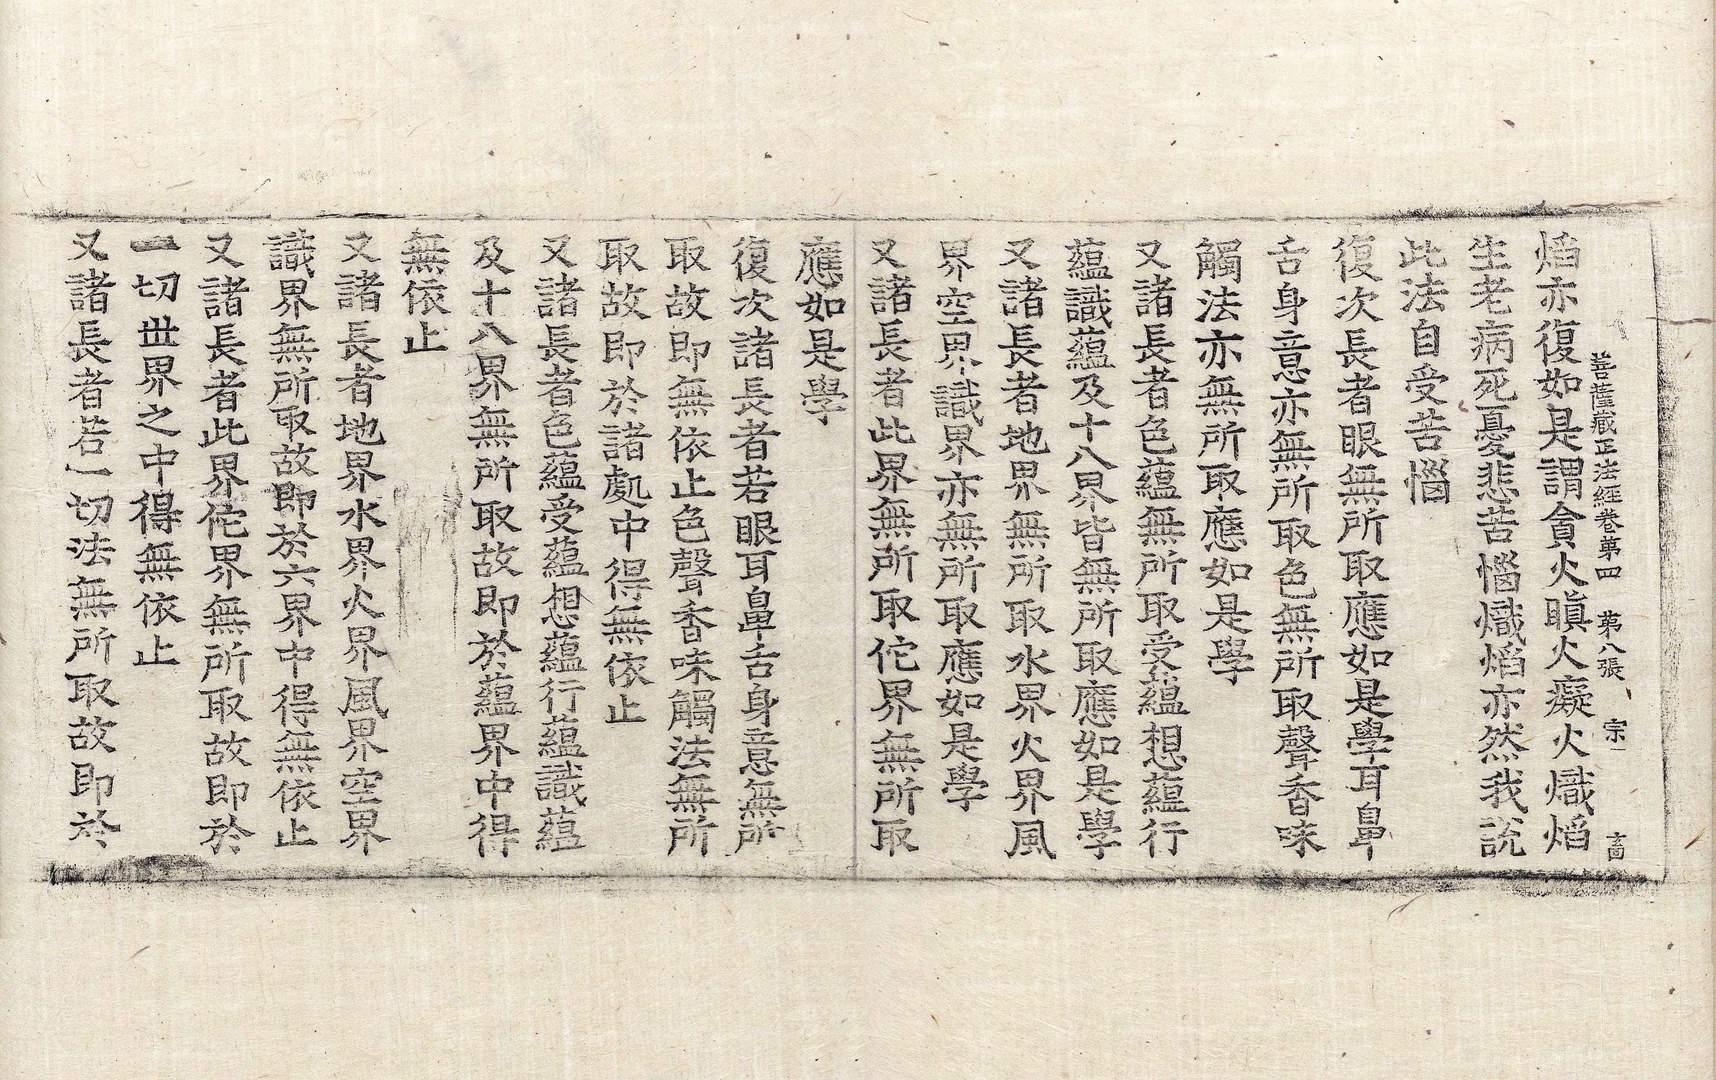 菩薩藏正法經卷第四　第八張　宗
焰亦復如是謂貪火瞋火癡火熾焰
生老病死憂悲苦惱熾焰亦然我說
此法自受苦惱
復次長者眼無所取應如是學耳鼻
舌身意亦無所取色無所取聲香味
觸法亦無所取應如是學
又諸長者色蘊無所取受蘊想蘊行
蘊識蘊及十八界皆無所取應如是學
又諸長者地界無所取水界火界風
界空界識界亦無所取應如是學
又諸長者此界無所取佗界無所取
應如是學
復次諸長者若眼耳鼻舌身意無所
取故即無依止色聲香味觸法無所
取故即於諸處中得無依止
又諸長者色蘊受蘊想蘊行蘊識蘊
及十八界無所取故即於蘊界中得
無依止
又諸長者地界水界火界風界空界
識界無所取故即於六界中得無依止
又諸長者此界佗界無所取故即於
一切世界之中得無依止
又諸長者若一切法無所取故即於